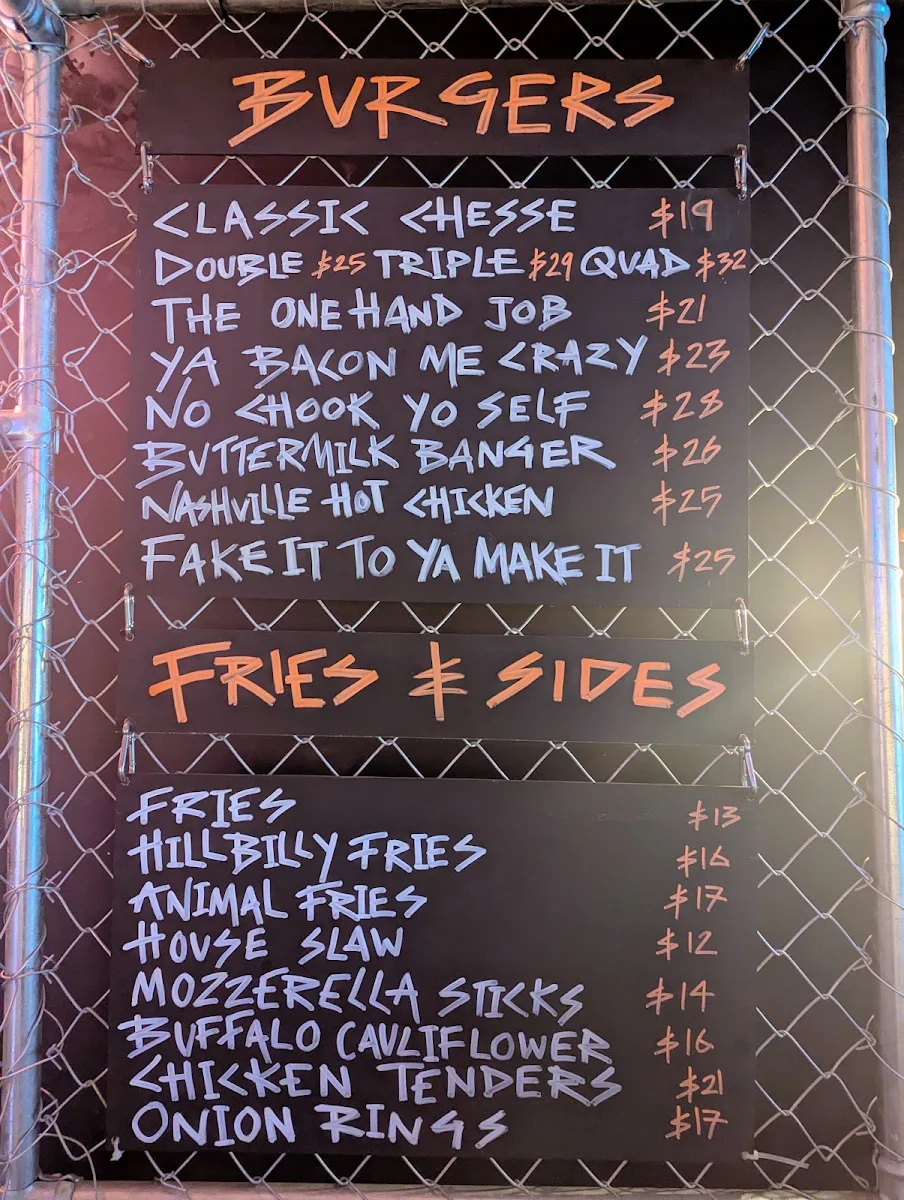 BURGERS
CLASSIC CHESSE $19
DOUBLE $25 TRIPLE $29 QUAD $32
THE ONE HAND JOB $21
YA BACON ME CRAZY $23
NO CHOOK YO SELF $28
BUTTERMILK BANGER $26
NASHVILLE HOT CHICKEN $25
FAKE IT TO YA MAKE IT $25
FRIES & SIDES
FRIES $13
HILLBILLY FRIES $16
ANIMAL FRIES $17
HOUSE SLAW $12
MOZZERELLA STICKS $14
BUFFALO CAULIFLOWER $16
CHICKEN TENDERS $21
ONION RINGS $17